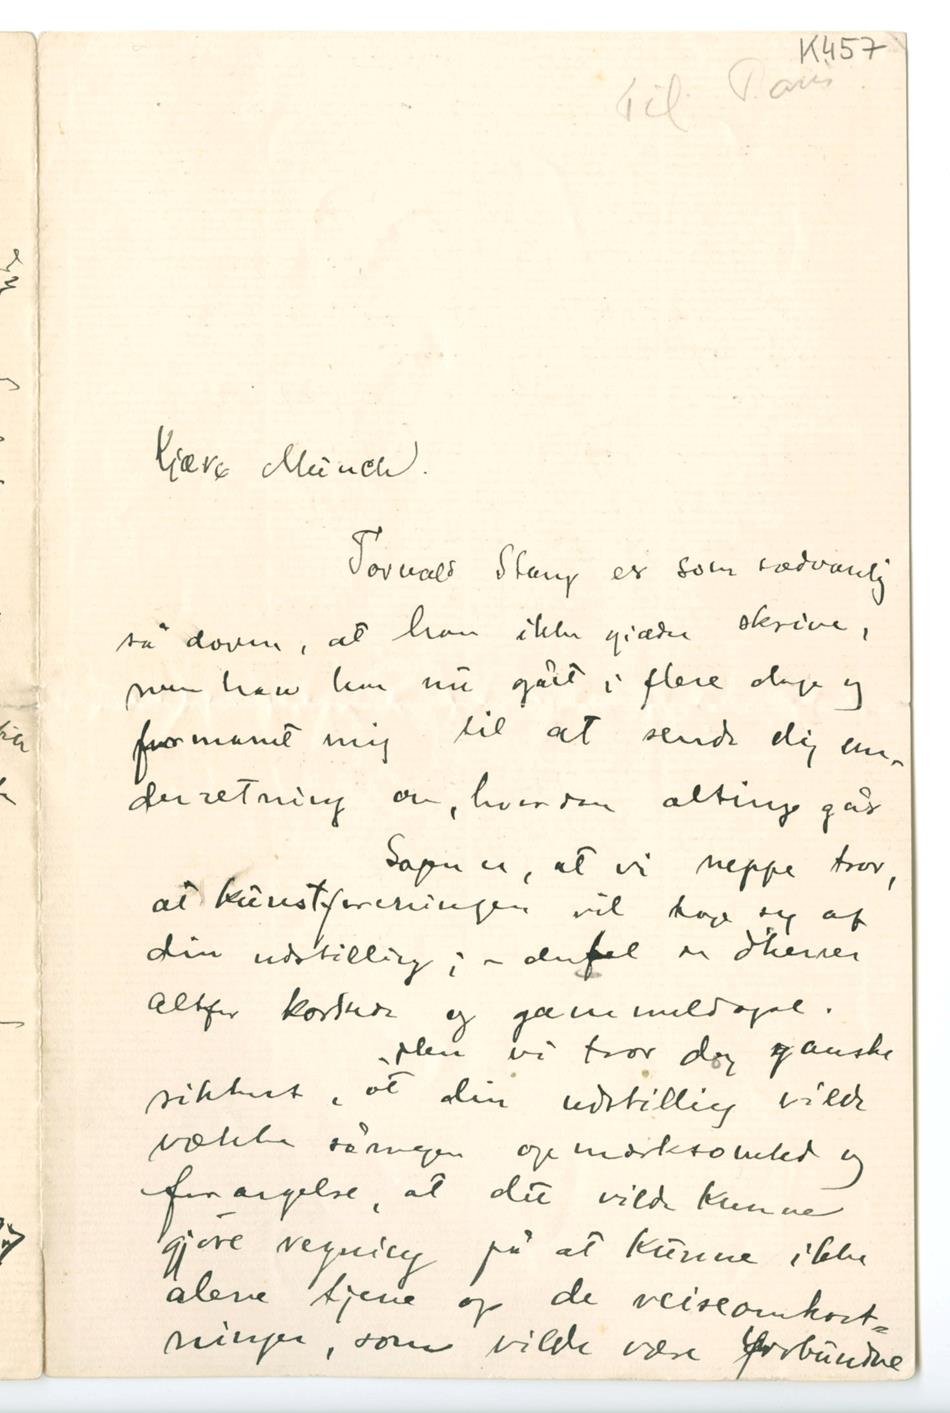 K457
Til Paris
Kjære Münch.
Torvald Stang er som sædvanlig
så doven, at han ikke gider skrive,
men han har nu gået i flere dage og
formanet mig til at sende dig un-
derretning om, hvordan alting går
Sagen er, at vi neppe tror,
at kunstforeningen vil tage sig af
din udstilling; – dertil er d'herrer
altfor and og gammeldagse.
Men vi tror dog ganske
sikkert, at din udstilling vilde
vække såmegen opmærksomhed og
forargelse, at du vilde kunne
gjøre regning på at kunne ikke
alene tjene op de reiseomkost-
ninger, som vilde være forbundne